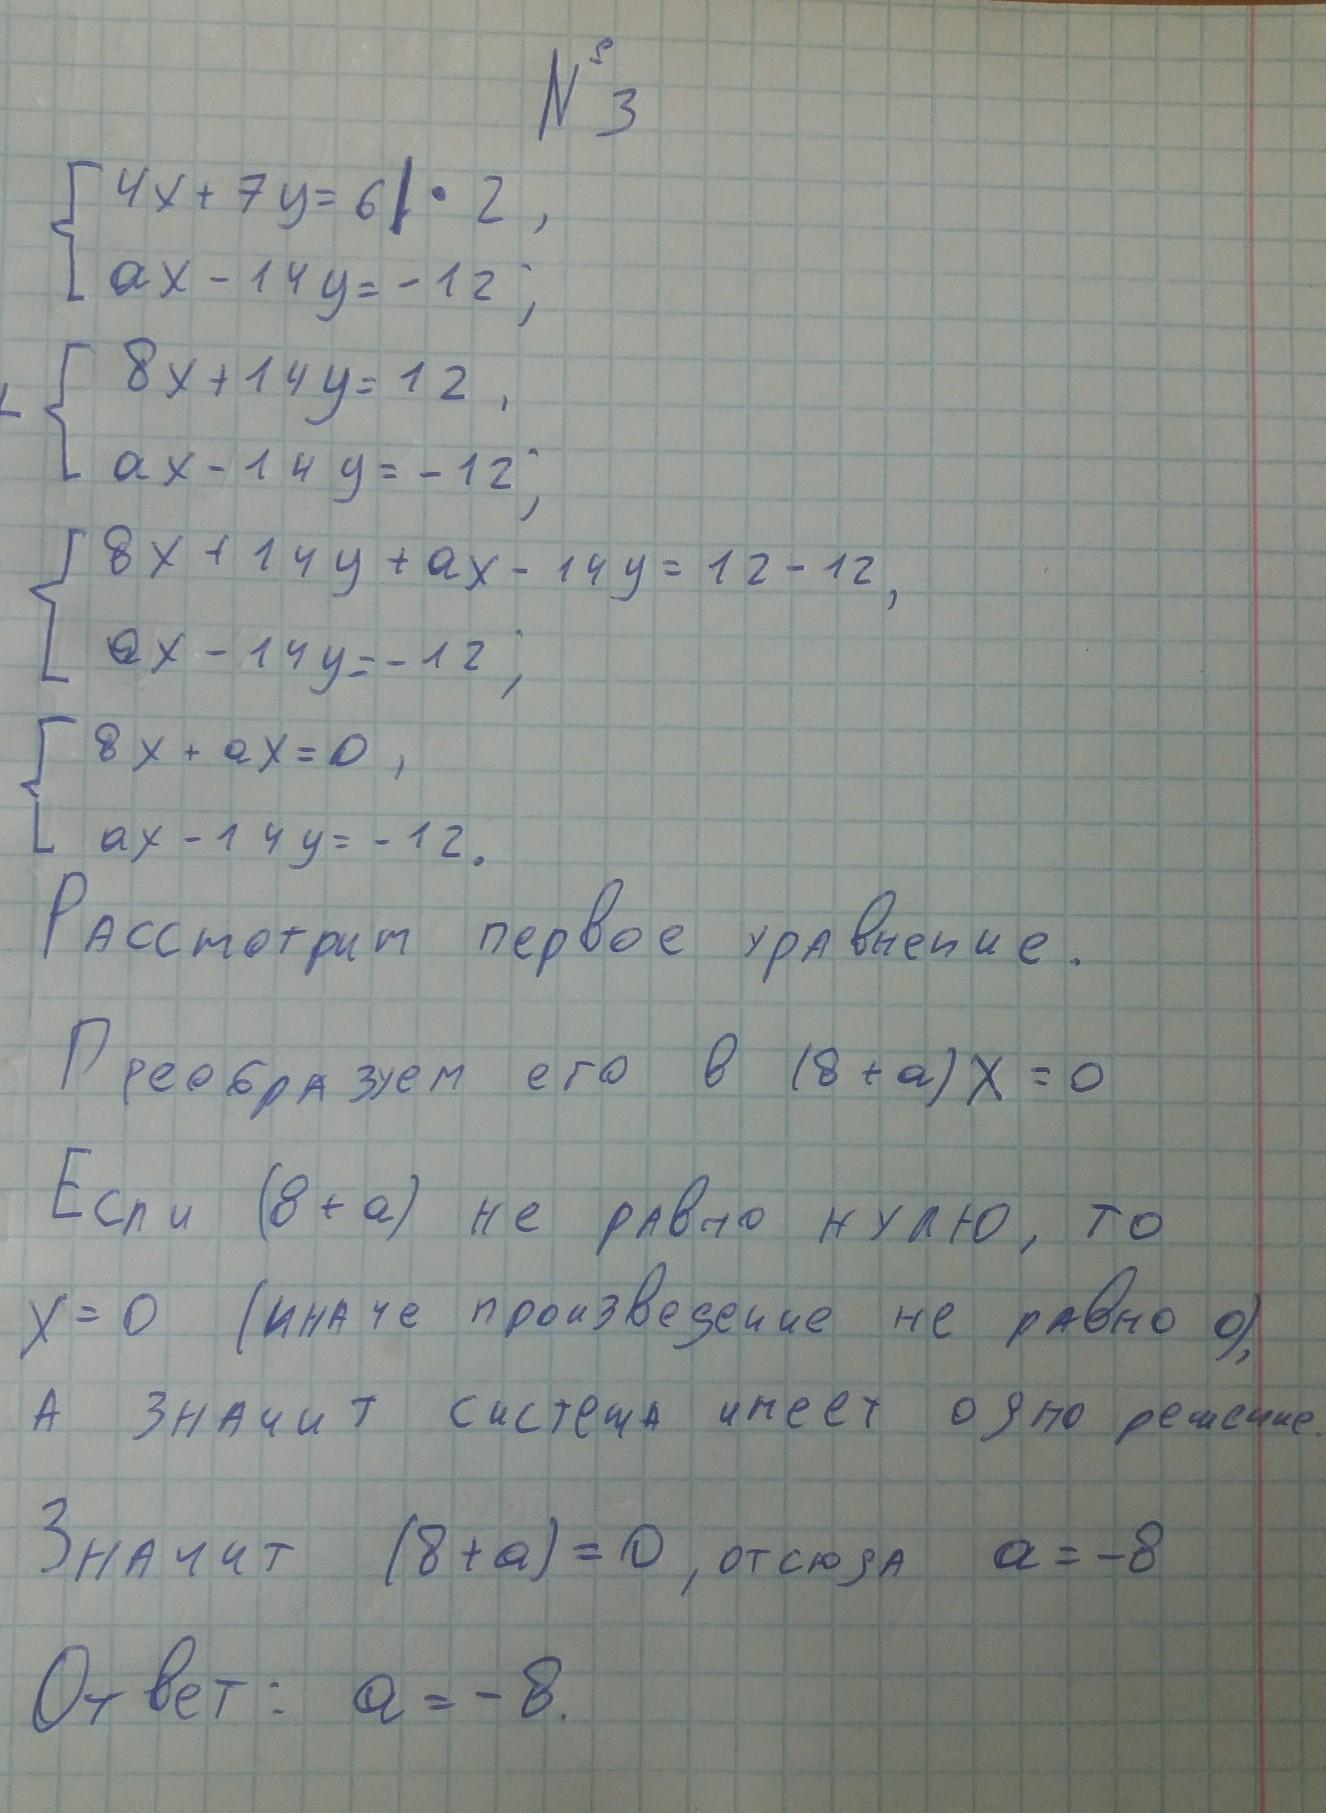 N°3
4x+7y=6|·2,
ax-14y=-12;
+
8x+14y=12,
ax-14y=-12;
8x+14y+ax-14y=12-12,
ax-14y=-12;
8x+ax=0,
ax-14y=-12.
Рассмотрим первое уравнение.
Преобразуем его в (8+a)x=0
Если (8+a) не равно нулю, то
x=0 (иначе произведение не равно 0),
а значит система имеет одно решение.
Значит (8+a)=0, отсюда a=-8
Ответ: a=-8.